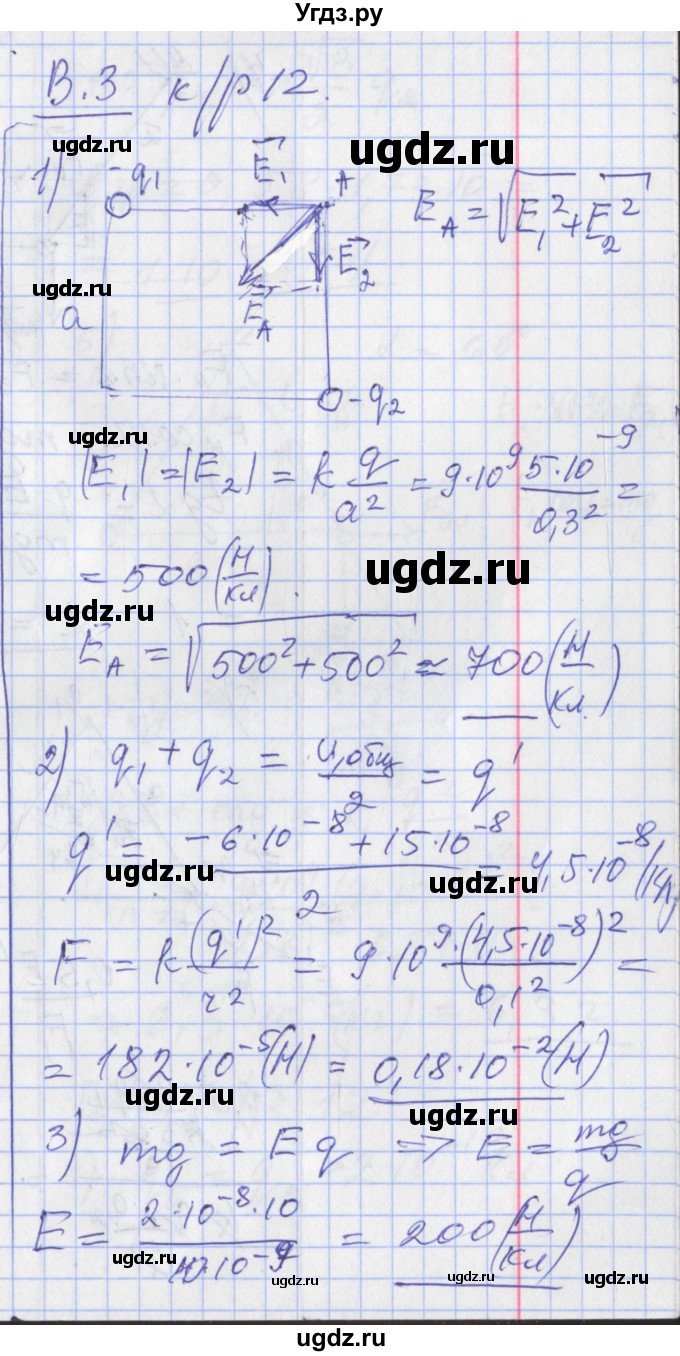 Угдз.ру
В.3 к/р 12.
ugdz.ru
ugdz.ru
1) -q₁ E₁ A E_A = √(E₁² + E₂²)
E₂
ugdz.ru
a E_A
-q₂
ugdz.ru
|E₁| = |E₂| = k q/a² = 9·10⁹ 5·10⁻⁹/0,3² =
ugdz.ru
= 500 (Н/Кл).
ugdz.ru
E_A = √(500² + 500²) ≈ 700 (Н/Кл.)
2) q₁ + q₂ = общ/2 = q'
q' = (-6·10⁻⁸ + 15·10⁻⁸)/2 = 4,5·10⁻⁸ (Кл)
ugdz.ru
ugdz.ru
F = k (q')²/r² = 9·10⁹·(4,5·10⁻⁸)²/0,1² =
= 182·10⁻⁵ (Н) = 0,18·10⁻² (Н)
ugdz.ru
ugdz.ru
3) mg = Eq ⇒ E = mg/q
E = 2·10⁻⁸·10/10·10⁻⁹ = 200 (Н/Кл)
ugdz.ru
ugdz.ru
ugdz.ru
ugdz.ru